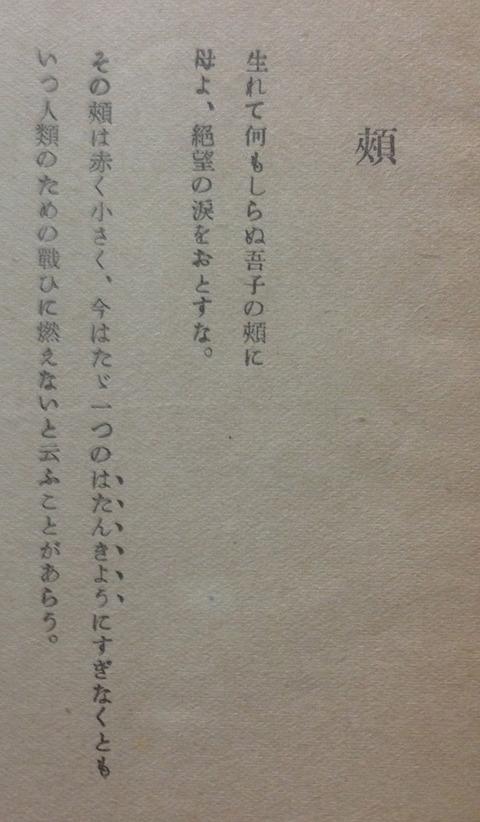 頰
生れて何もしらぬ吾子の頰に
母よ、絕望の淚をおとすな。
その頰は赤く小さく、今はたゞ一つのはたんきようにすぎなくとも
いつ人類のための戰ひに燃えないと云ふことがあらう。